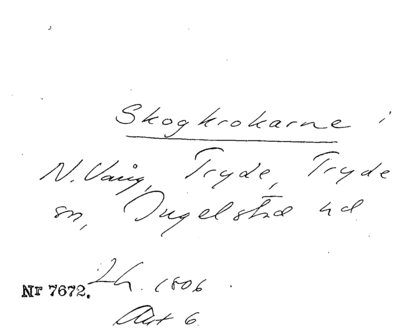 Skogkrokarne i
N. Vång, Tryde, Tryde
sn, Ingelstad hd
Lh. 1806.
Nr 7672.
Akt 6